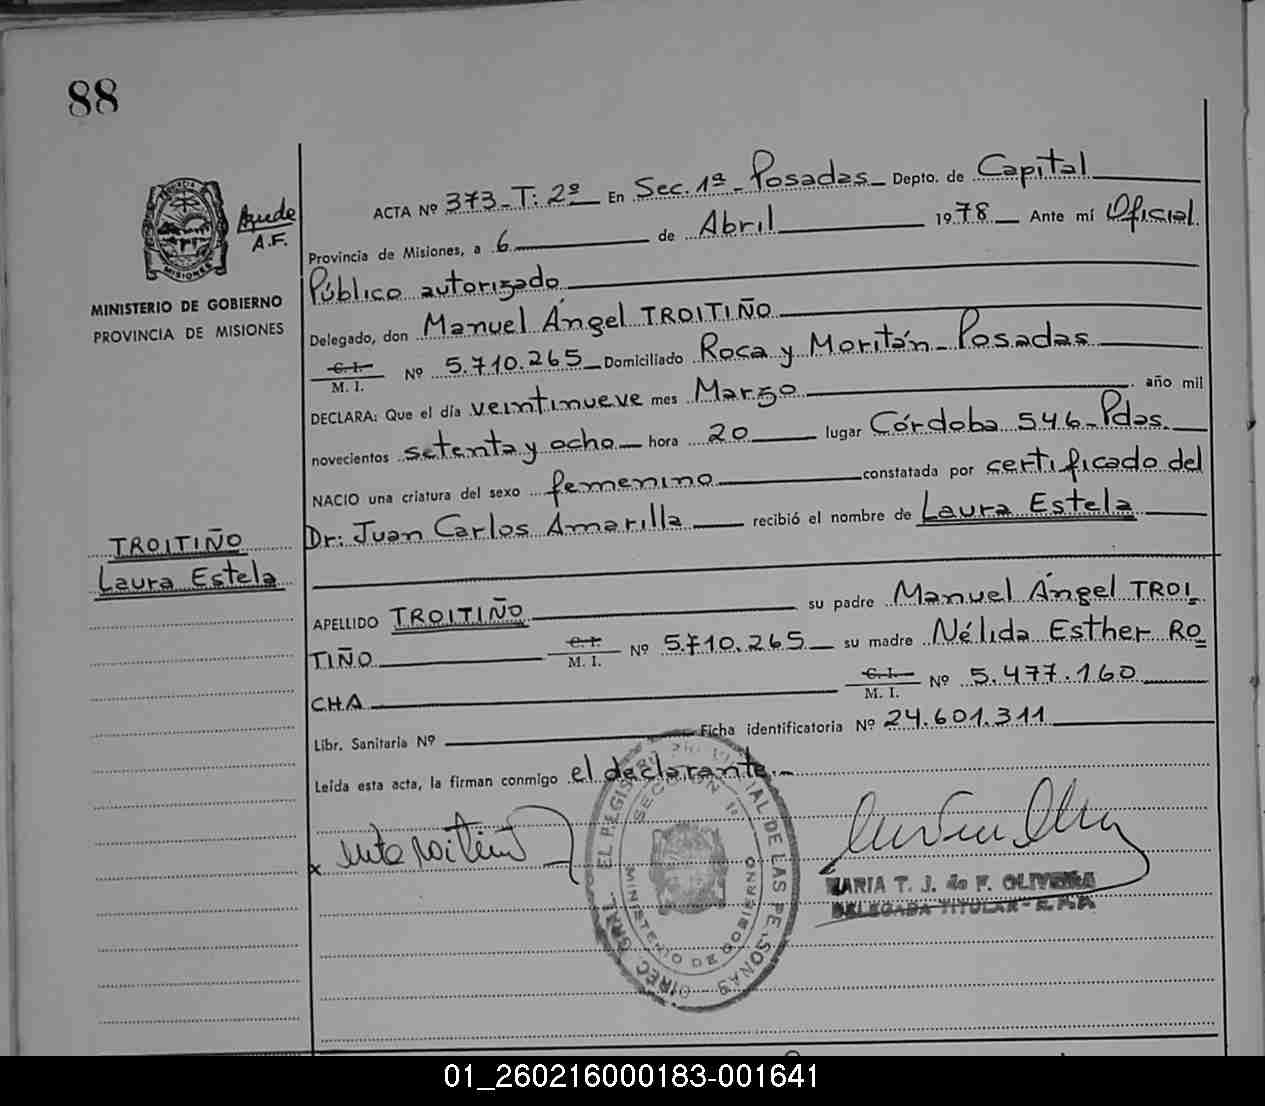 88
Ayude
A.F.
MISIONES
MINISTERIO DE GOBIERNO
PROVINCIA DE MISIONES
TROITIÑO
Laura Estela
ACTA Nº 373-T: 2º En Sec. 1ª - Posadas Depto. de Capital
Provincia de Misiones, a 6 de Abril 1978 Ante mí Oficial
Público autorizado
Delegado, don Manuel Ángel TROITIÑO
C. I.
M. I. Nº 5.710.265 Domiciliado Roca y Moritán - Posadas
DECLARA: Que el día veintinueve mes Marzo año mil
novecientos setenta y ocho hora 20 lugar Córdoba 546 - Pdas.
NACIO una criatura del sexo femenino constatada por certificado del
Dr: Juan Carlos Amarilla recibió el nombre de Laura Estela
APELLIDO TROITIÑO su padre Manuel Ángel TROI
TIÑO C. I.
M. I. Nº 5.710.265 su madre Nélida Esther RO
CHA C. I.
M. I. Nº 5.477.160
Libr. Sanitaria Nº Ficha identificatoria Nº 24.601.311
Leída esta acta, la firman conmigo el declarante.-
x
DIREC. GRAL. EL REGISTRO PROVINCIAL DE LAS PERSONAS
SECCION 1ª
MINISTERIO DE GOBIERNO
MARIA T. J. de F. OLIVEIRA
DELEGADA TITULAR - R. P. P.
01_260216000183-001641